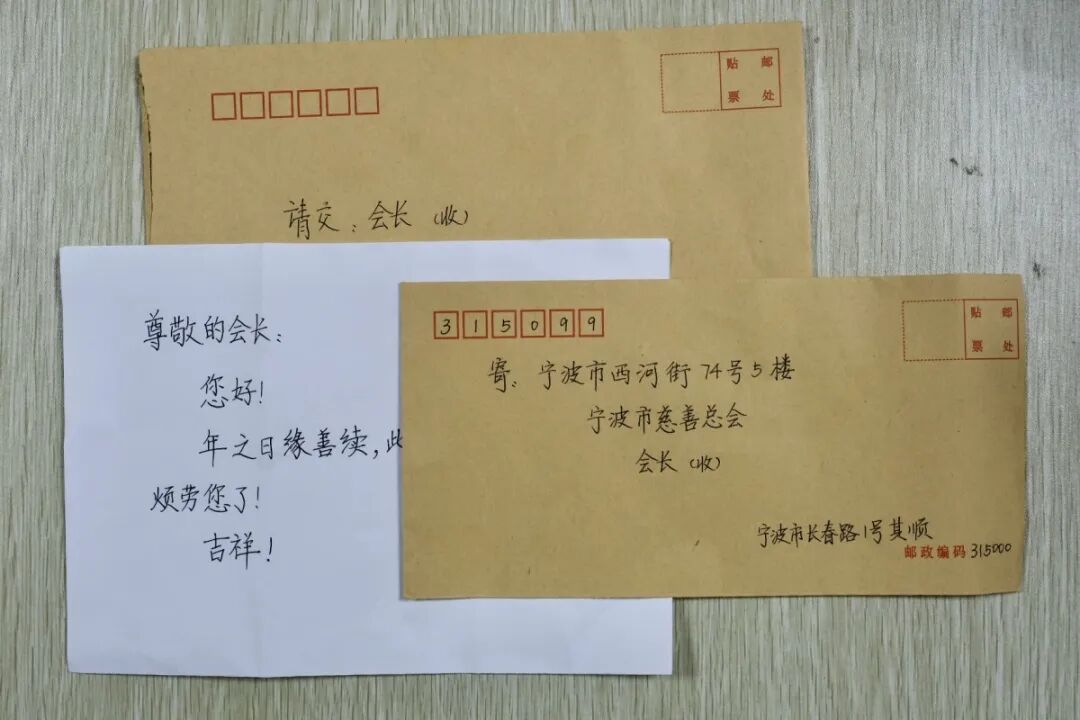 贴 邮
票 处
请交：会长（收）
尊敬的会长：
您好！
年之日缘善续，此
烦劳您了！
吉祥！
贴 邮
票 处
315099
寄：宁波市西河街74号5楼
宁波市慈善总会
会长（收）
宁波市长春路1号其顺
邮政编码 315000